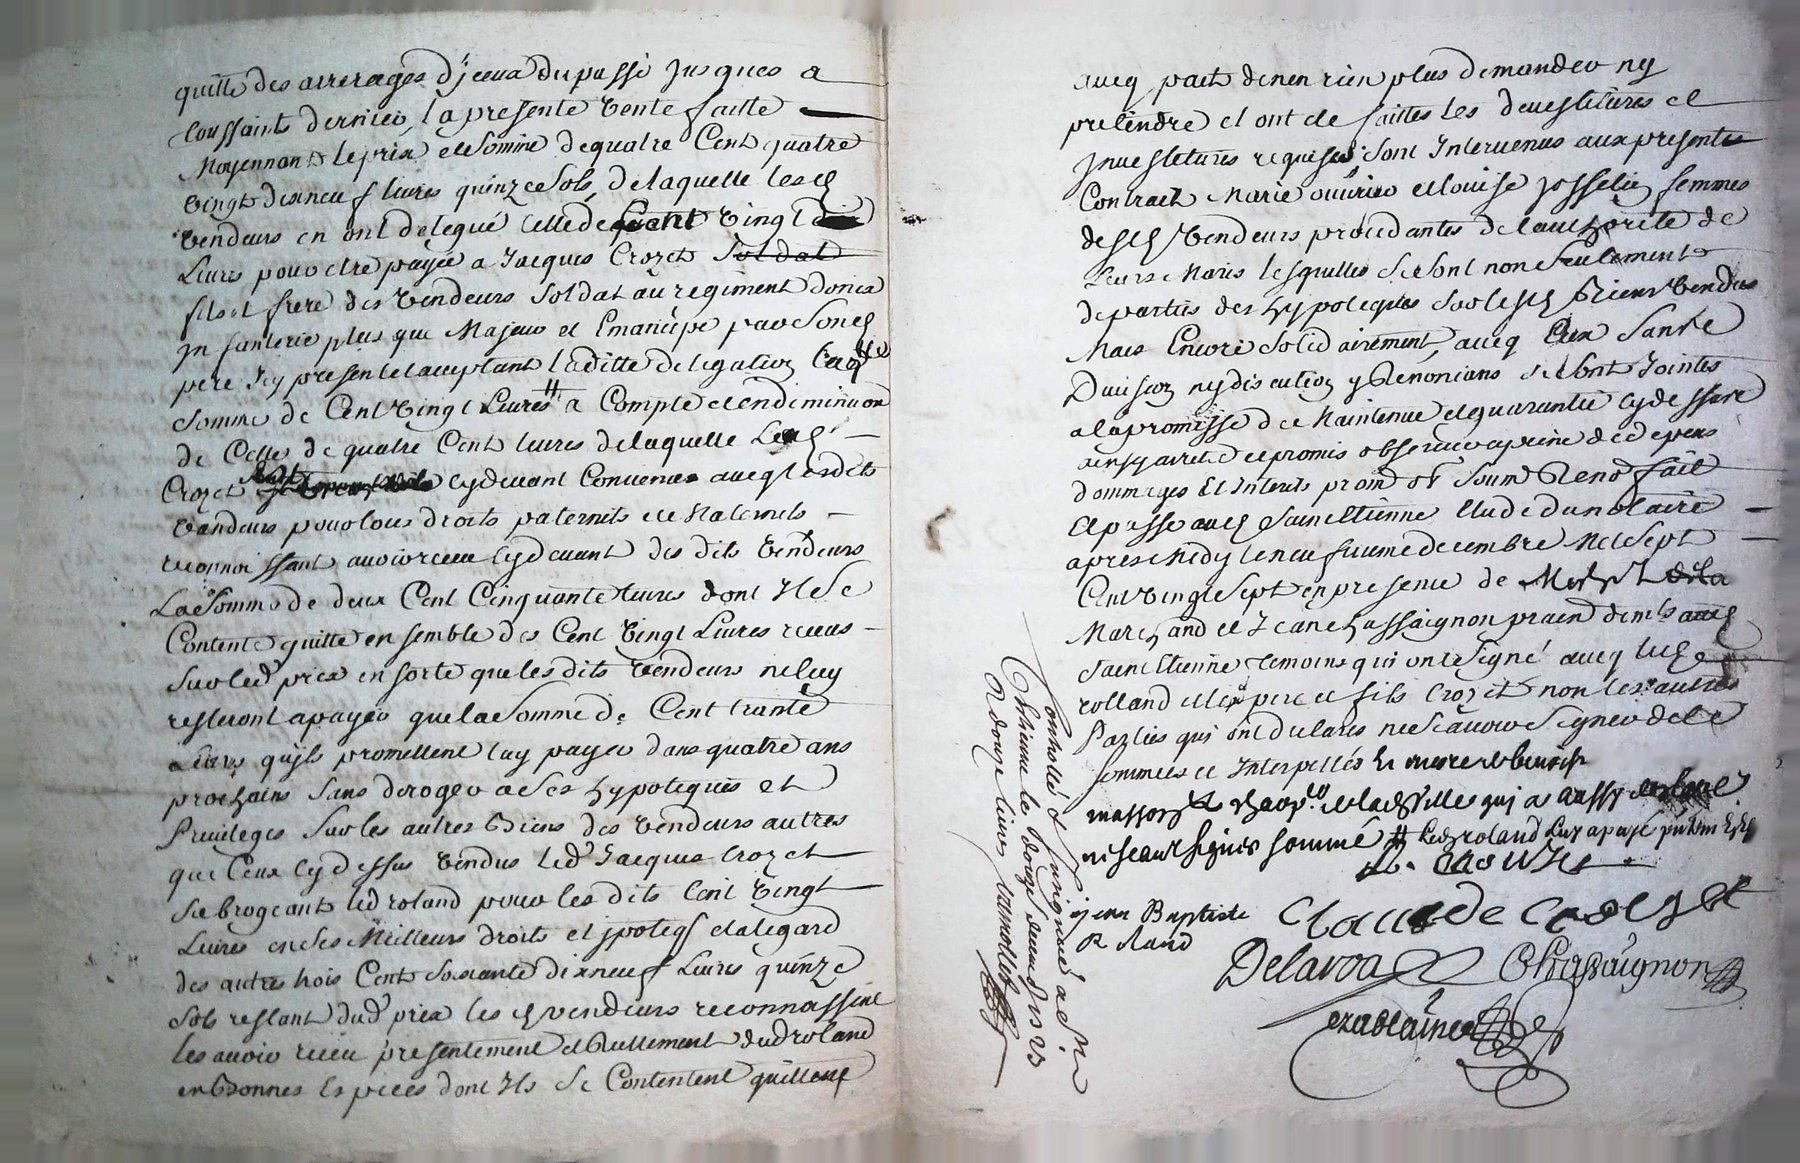 quitte des arrerages d'jceux du passé jusques a
toussaints dernier, la presente vente faitte
moyennant le prix et somme de quatre cent quatre
vingt dixneuf livres quinze sols, de laquelle lesd
vendeurs en ont delegué celle de cent vingt
livres pour etre payée a Jacques Crozet soldat
fils et frere des vendeurs soldat au regiment
jnfanterie plus que majeur et emancipé par sond
pere icy present et acceptant laditte delegation
somme de cent vingt livres # a compte et en diminuon
de celle de quatre cent livres de laquelle led
Crozet cydevant convenue avecq lesdits
vandeurs pour tous droits paternels et maternels
reconnoissant avoir receu cydevant des dits vendeurs
la somme de deux cent cinquante livres dont il se
contente quitte ensemble des cent vingt livres receus
sur led prix en sorte que les dits vendeurs ne luy
resteront a payer que la somme de cent trante
livres qu'ils promettent luy payer dans quatre ans
prochains sans deroger a ses hypoteques et
privileges sur les autres biens des vendeurs autres
que ceux cydessus vendus led Jacques Crozet
subrogeant led roland pour les dits cent vingt
livres en ses meilleurs droits et jpoteq et a legard
des autres trois cent soixante dixneuf livres quinze
sols restant dud prix les d vendeurs reconnoissent
les avoir receu presentement et reellement dud roland
en bonnes especes dont ils se contentent quittent
avecq pact de nen rien plus demander ny
pretendre et ont ete faittes les devestitures et
jnvestitures requises sont intervenus aux presents
contract Marie ouvrier et louise josselin femmes
desd vendeurs procedantes de lauthorité de
leurs maris lesquelles se sont non seulement
departies des hypoteques sur lesd biens vendus
mais encore solidairement, avecq eux sans
division ny discution y renoncians se sont jointes
a la promesse de maintenue et guarantie cydessus
ainsy arreté et promis observer a peine de depens
dommages et interets soum renon fait
et passé aud Saint Etienne etude du notaire
apres midy le neufvieme decembre mil sept
cent vingt sept en presence de
marchand et Jean chassaignon
Saint Etienne temoins qui ont signé avecq led
rolland et les pere et fils Crozet non les autres
parties qui ont declarés ne scavoir signer de ce
sommées et interpellés
masson de lad ville qui a aussy
ne scavoir signer sommé #
Crouzet
jean Baptiste
Roland
Claude Crozet
Delaroa
Chassaignon
Controllé et
Etienne le douze
R douze livres